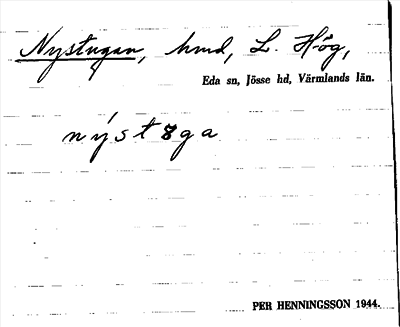 Nystugan, hmd, L. Hög,
Eda sn, Jösse hd, Värmlands län.
nýstøga
PER HENNINGSSON 1944.